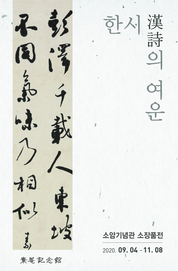 한시 漢詩의 여운
彭澤千載人東坡
不同氣味乃相似
소암기념관 소장품전
2020. 09. 04 - 11. 08
素菴記念館